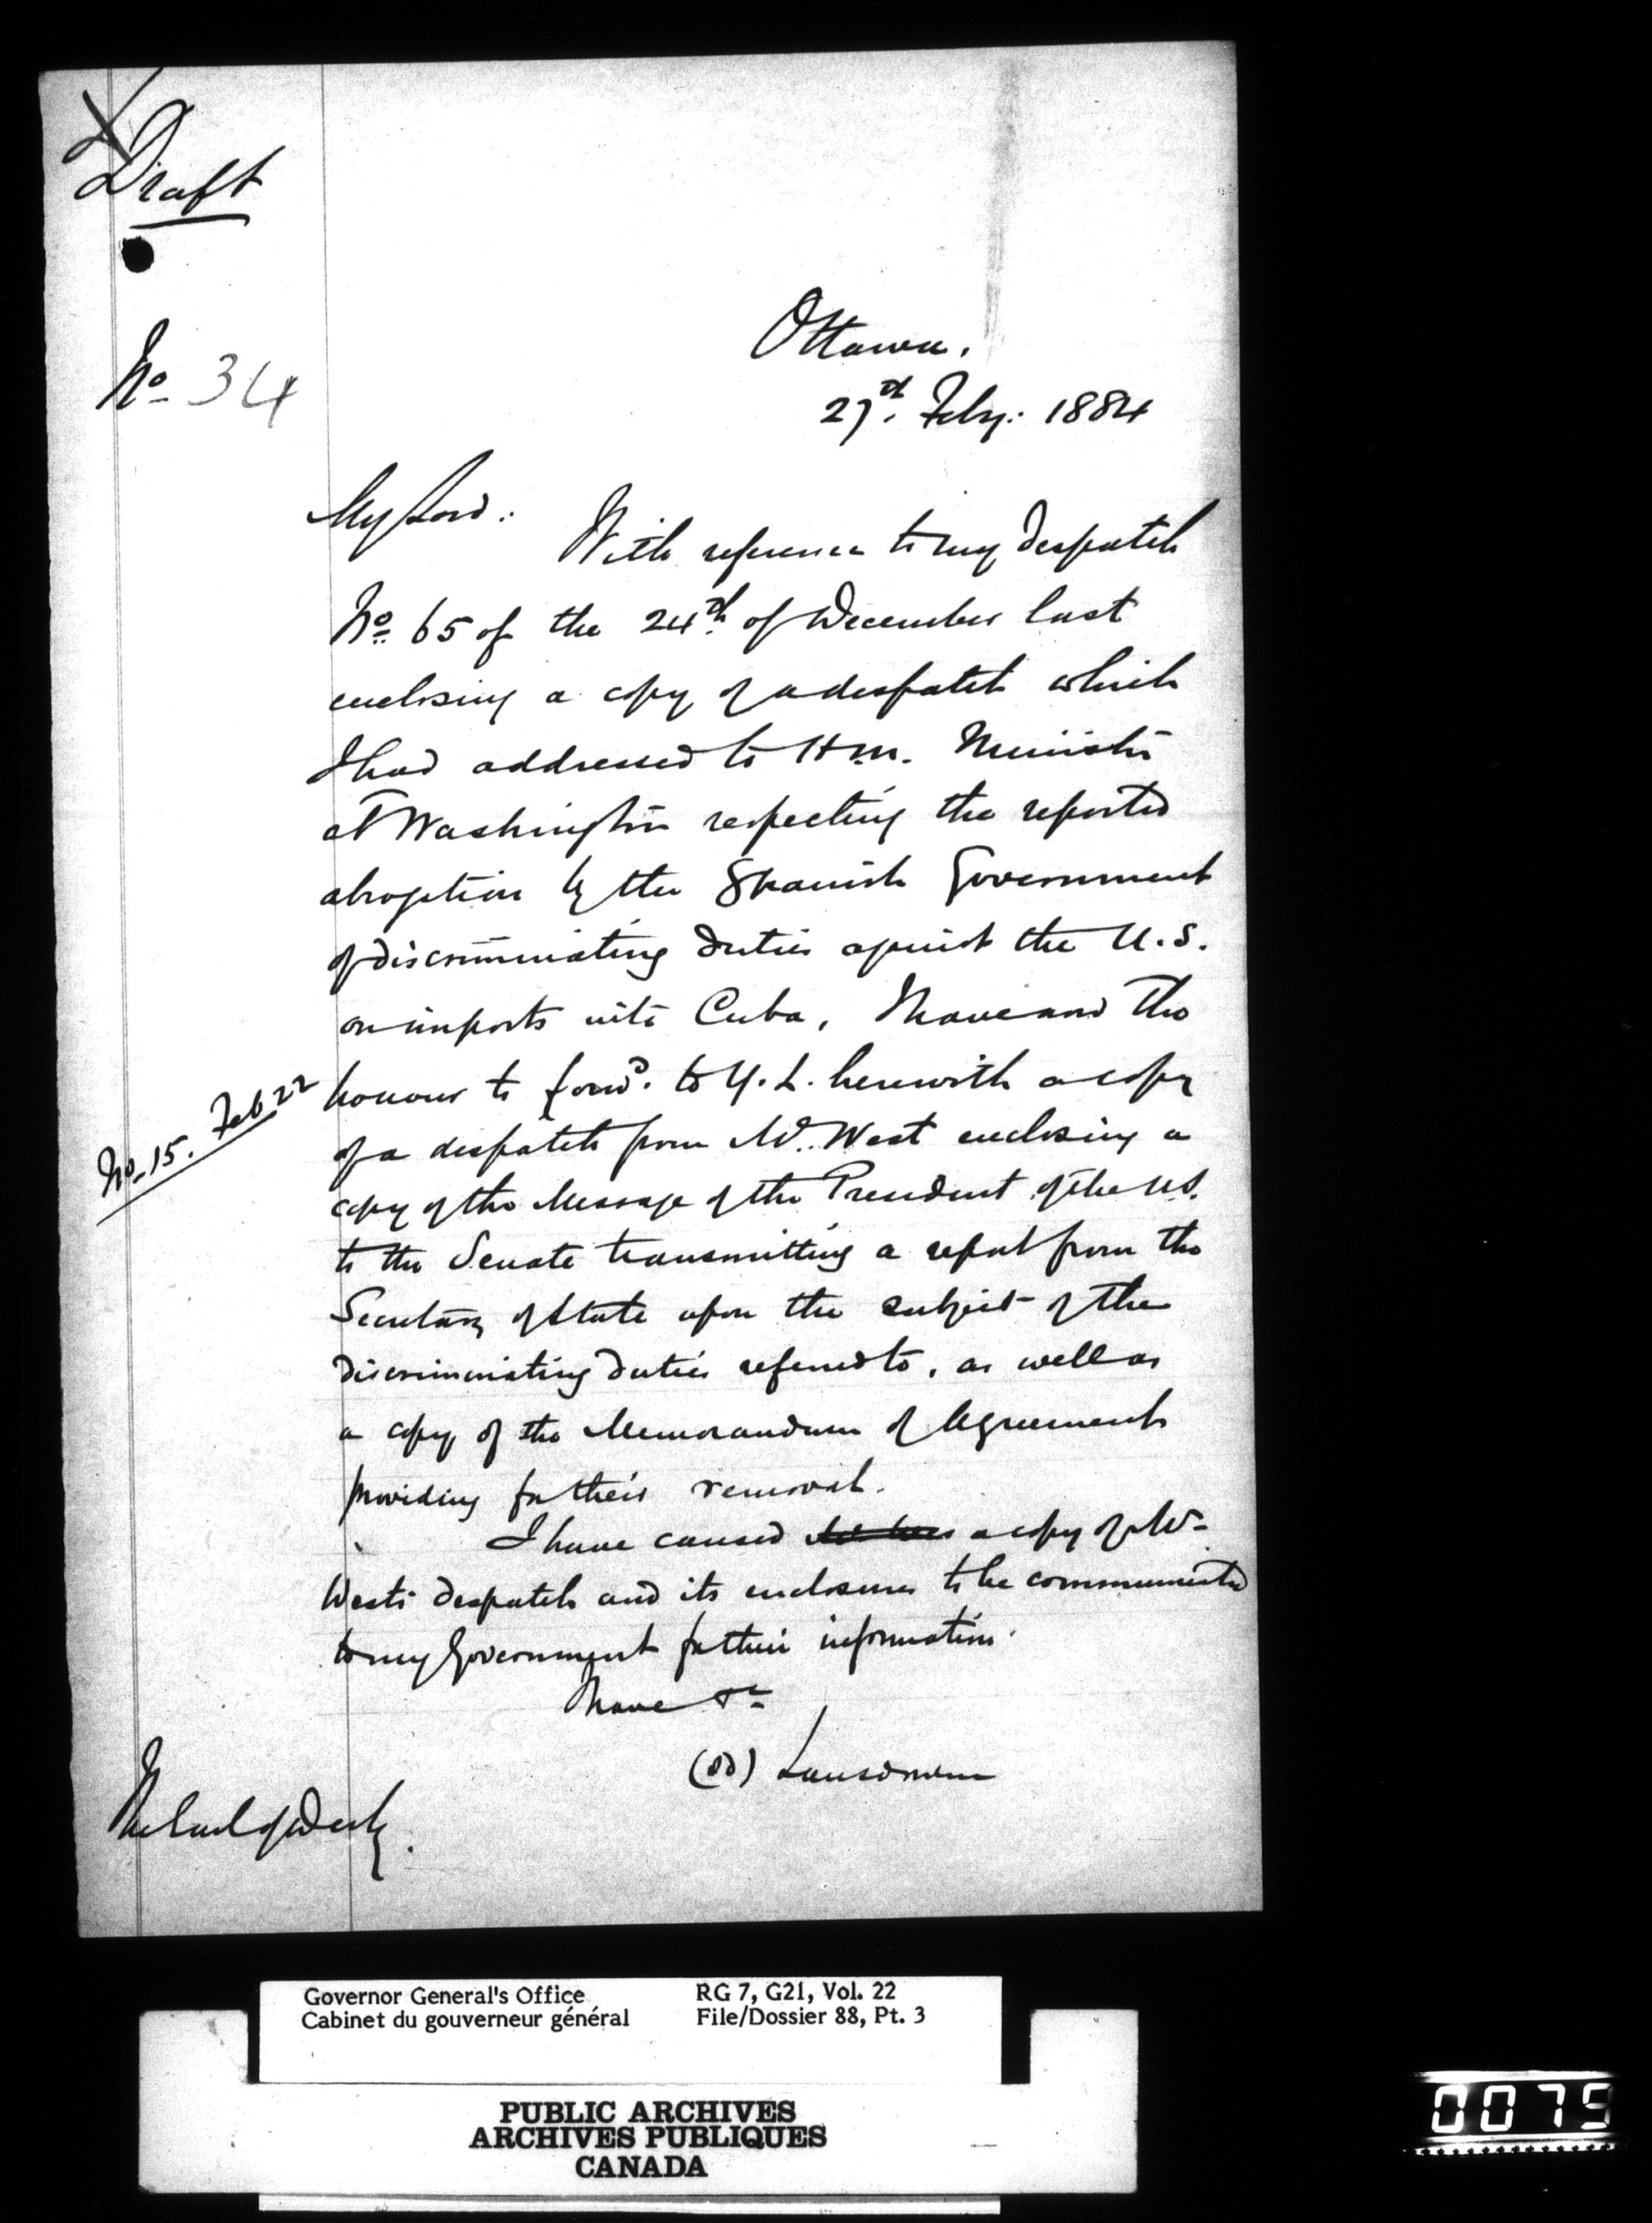 Draft
No 34
Ottawa,
27th. Feby: 1884
My Lord:
With reference to my despatch
No. 65 of the 24th. of December last
enclosing a copy of a despatch which
I had addressed to H.M. Minister
at Washington respecting the reported
abrogation by the Spanish Government
of discriminating duties against the U.S.
on imports into Cuba, I have now the
No. 15. Feb 22
honour to forwd. to Y.L. herewith a copy
of a despatch from Mr. West enclosing a
copy of the Message of the President of the U.S.
to the Senate transmitting a report from the
Secretary of State upon the subject of the
discriminating duties referred to, as well as
a copy of the Memorandum of Agreement
providing for their removal.
I have caused a copy of Mr.
West's despatch and its enclosures to be communicated
to my Government for their information.
I have &c
(sd) Lansdowne
The Earl of Derby.
Governor General's Office
Cabinet du gouverneur général
RG 7, G21, Vol. 22
File/Dossier 88, Pt. 3
PUBLIC ARCHIVES
ARCHIVES PUBLIQUES
CANADA
0075